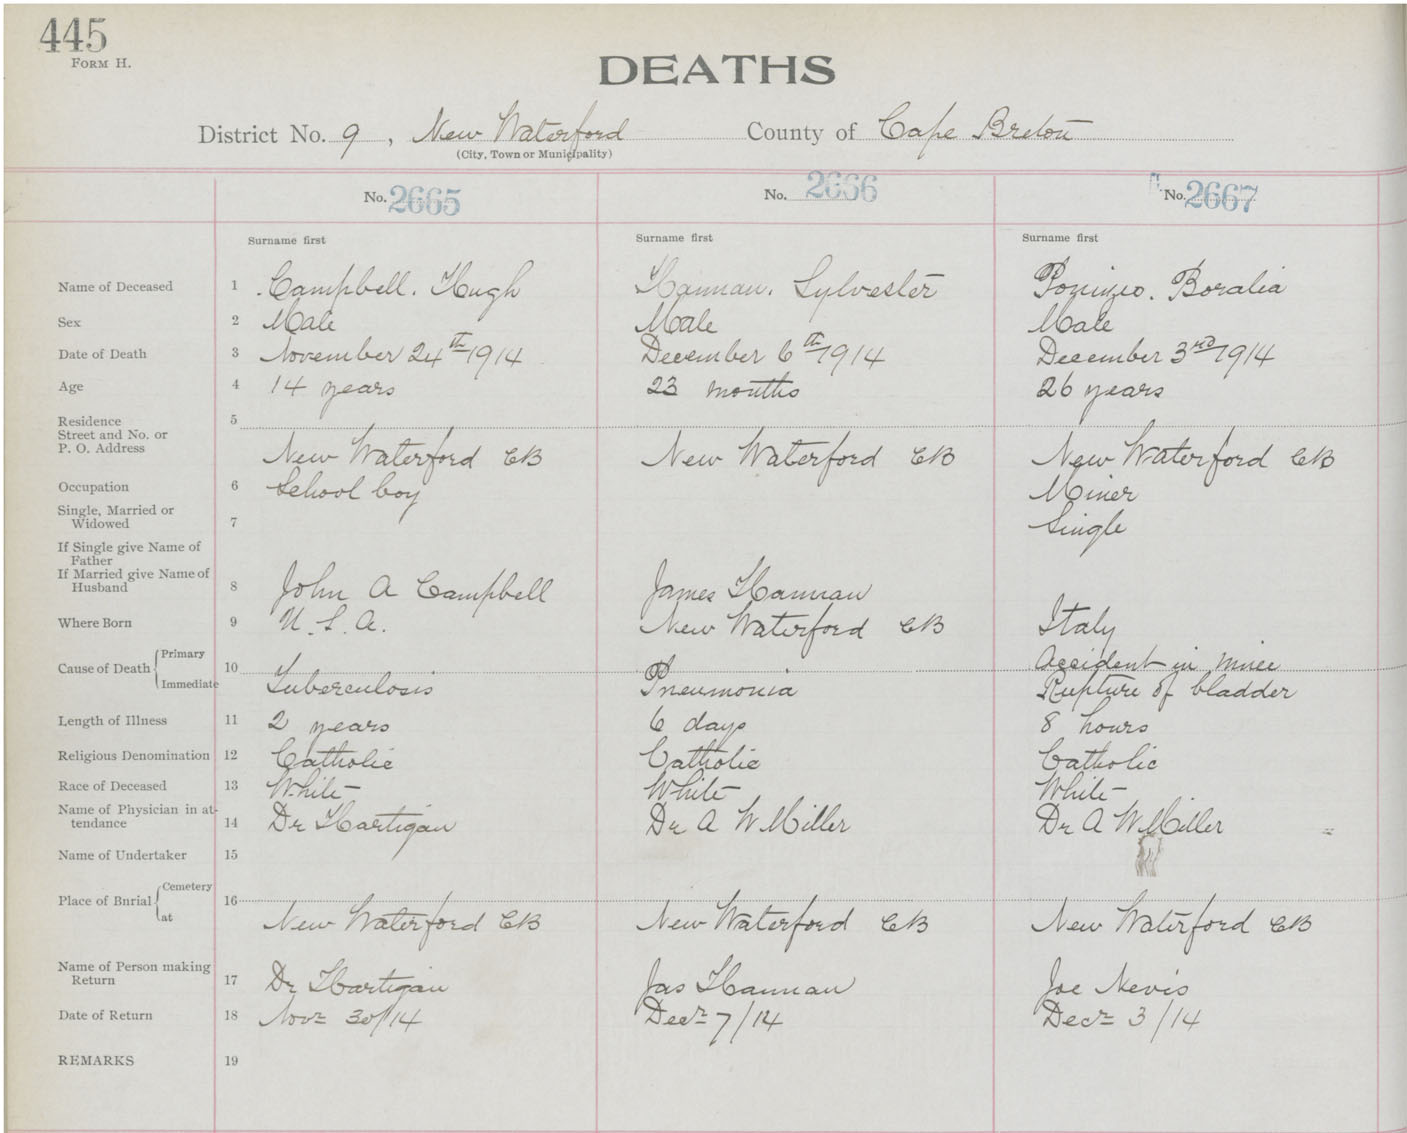 445
FORM H.
DEATHS
District No. 9, New Waterford County of Cape Breton
(City, Town or Municipality)
No. 2665 No. 2666 No. 2667
Surname first Surname first Surname first
Name of Deceased 1 Campbell. Hugh Hannan. Sylvester
Sex 2 Male Male Male
Date of Death 3 November 24th 1914 December 6th 1914 December 3rd 1914
Age 4 14 years 23 months 26 years
Residence 5
Street and No. or
P. O. Address New Waterford CB New Waterford CB New Waterford CB
Occupation 6 School boy Miner
Single, Married or
Widowed 7 Single
If Single give Name of
Father
If Married give Name of
Husband 8 John A Campbell James Hannan
Where Born 9 U. S. A. New Waterford CB Italy
Cause of Death Primary 10 Accident in mine
Immediate Tuberculosis Pneumonia Rupture of bladder
Length of Illness 11 2 years 6 days 8 hours
Religious Denomination 12 Catholic Catholic Catholic
Race of Deceased 13 White White White
Name of Physician in at-
tendance 14 Dr Hartigan Dr A W Miller Dr A W Miller
Name of Undertaker 15
Place of Burial Cemetery 16
at New Waterford CB New Waterford CB New Waterford CB
Name of Person making
Return 17 Dr Hartigan Jas Hannan Joe Nevis
Date of Return 18 Novr 30/14 Decr 7/14 Decr 3/14
REMARKS 19